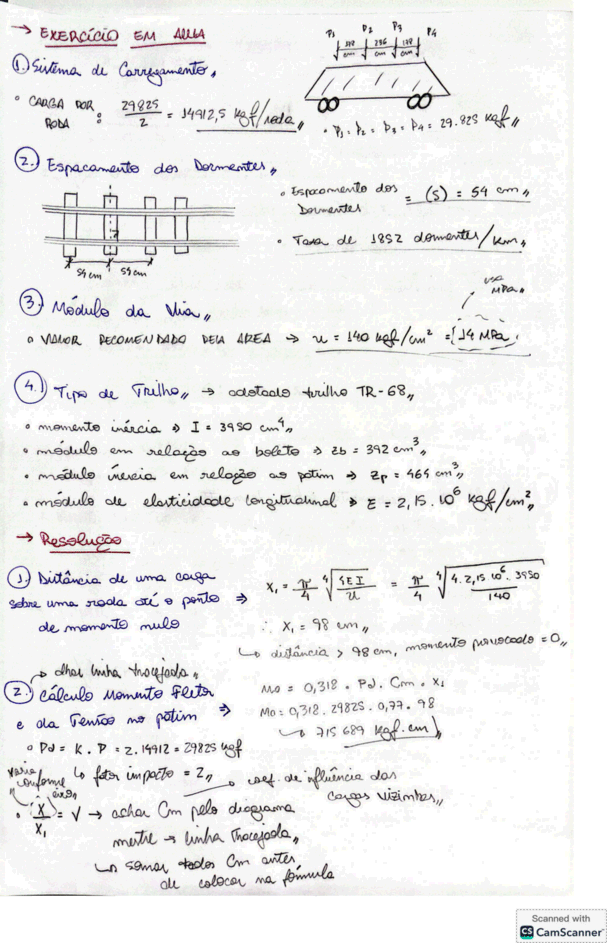 → EXERCÍCIO EM AULA
P1 P2 P3 P4
178 cm 236 cm 178 cm
① Sistema de Carregamento,,
• CARGA POR RODA : 29825 / 2 = 14912,5 kgf/roda,,
• P1 = P2 = P3 = P4 = 29.825 kgf,,
②. Espaçamento dos Dormentes,,
54 cm 54 cm
• Espaçamento dos Dormentes = (S) = 54 cm,,
• Taxa de 1852 dormentes/km,,
③. Módulo da Via,,
• VALOR RECOMENDADO PELA AREA → u = 140 kgf/cm² = (14 MPa),,
usa MPa,,
④.) Tipo de Trilho,, → adotado trilho TR-68,,
• momento inércia → I = 3950 cm⁴,,
• módulo em relação ao boleto → Zb = 392 cm³,,
• módulo inércia em relação ao patim → Zp = 464 cm³,,
• módulo de elasticidade longitudinal → E = 2,15 . 10⁶ kgf/cm²,,
→ Resolução
①. Distância de uma carga
sobre uma roda até o ponto ⇒
de momento nulo
X1 = π/4 ⁴√(4EI/u) = π/4 ⁴√(4 . 2,15 . 10⁶ . 3950/140)
∴ X1 = 98 cm,,
↳ distância > 98 cm, momento provocado = 0,,
↷ olhar linha tracejada,,
②. Cálculo Momento Fletor
e da Tensão no patim ⇒
Mo = 0,318 . Pd . Cm . X1
Mo = 0,318 . 29825 . 0,77 . 98
↳ 715 689 kgf.cm,,
• Pd = K . P = 2 . 14912 = 29825 kgf
↳ fator impacto = 2,,
coef. de influência das
cargas vizinhas,,
varia conforme eixo
• X/X1 = √ → achar Cm pelo diagrama
mestre → linha tracejada,,
↳ somar todos Cm antes
de colocar na fórmula
Scanned with
CS CamScanner